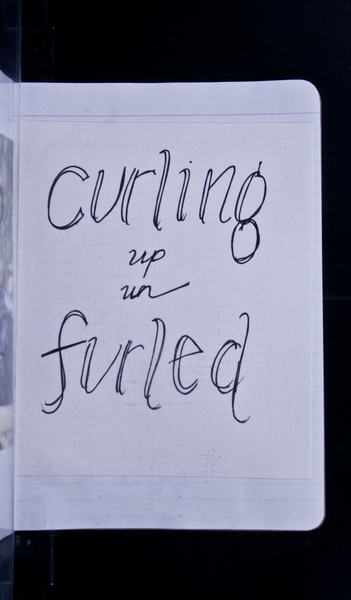 curling
up
un
furled